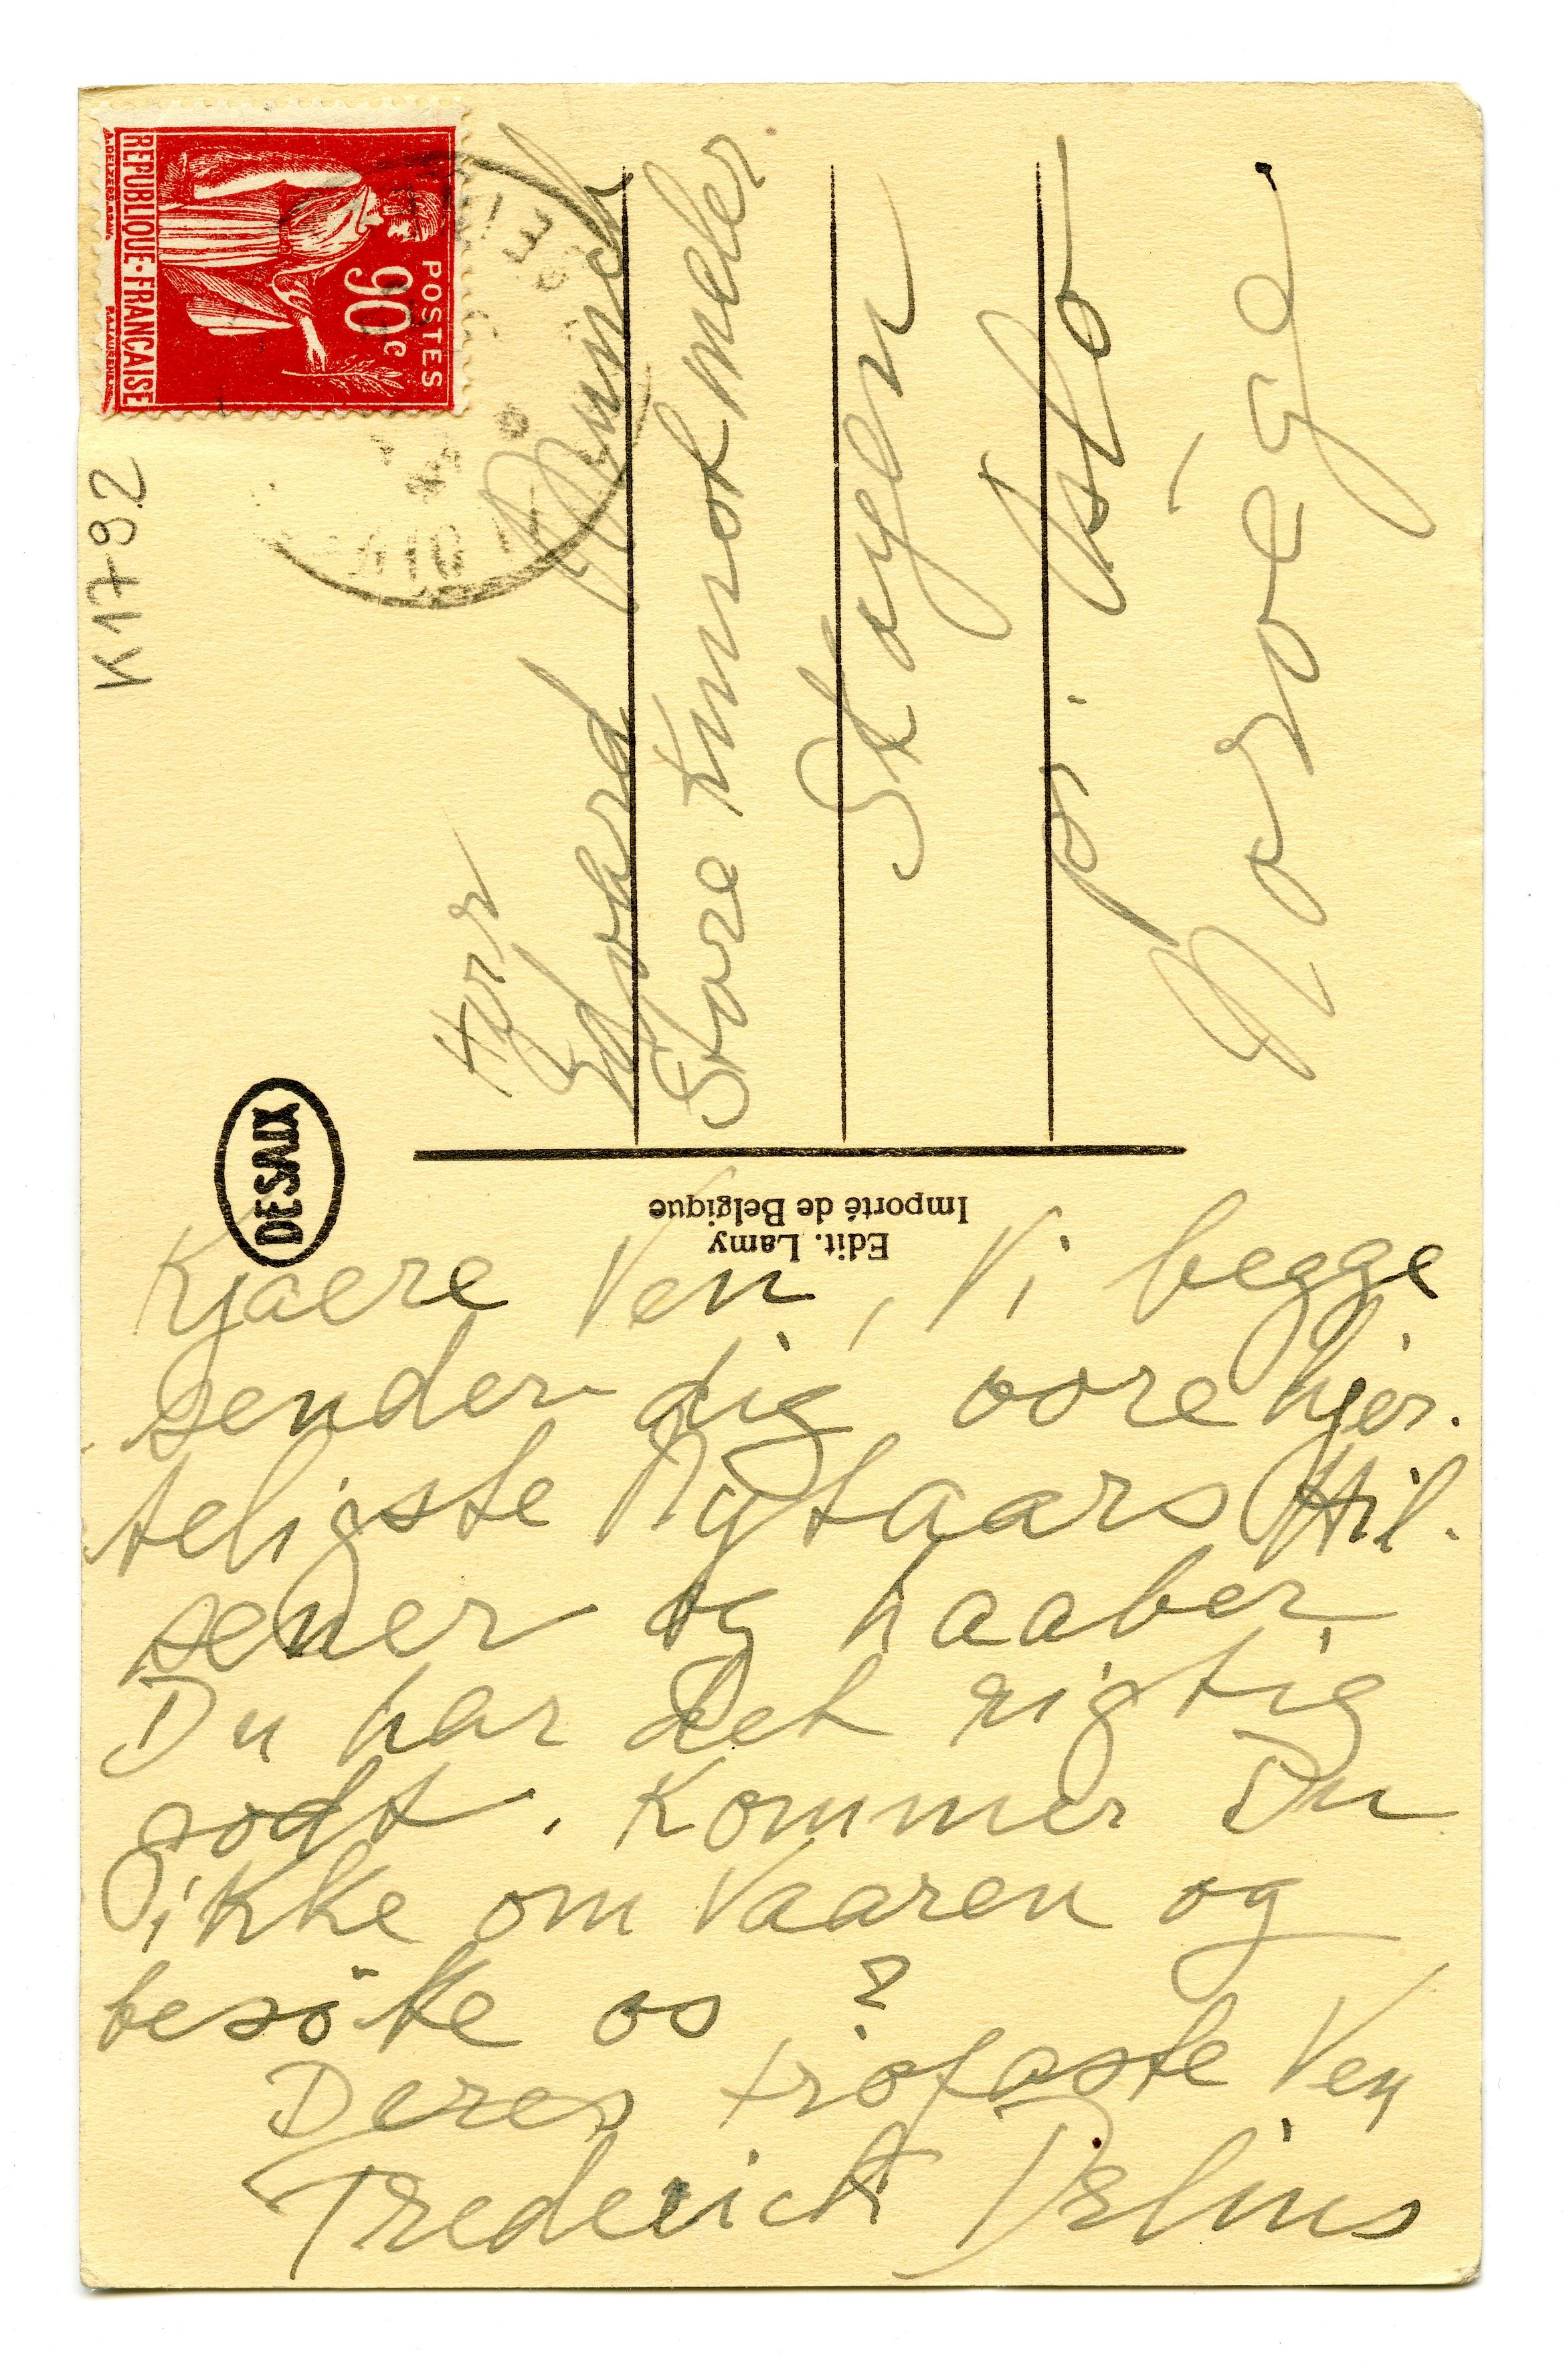 POSTES
90c
REPUBLIQUE · FRANÇAISE
K1782
Herr
Edvard Munch
Store Kunstmaler
Skøyen
p. Oslo
Norvège
DESAIX
Edit. Lamy
Importé de Belgique
Kjaere Ven, Vi begge
sender dig vore hjer-
teligste Nytaars Hil-
sener og haaber
Du har det rigtig
godt. Kommer Du
ikke om Vaaren og
besöke os?
Deres trofaste Ven
Frederick Delius